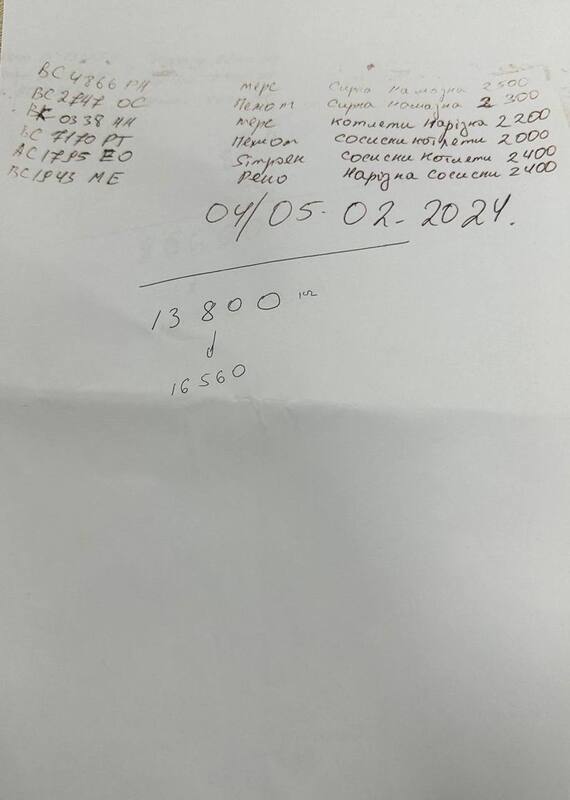 ВС 4866 РН мерс Сирна намазна 2 500
ВС 2747 ОС Пежот Сирна намазна 2 300
ВК 0338 НН мерс Котлети нарізка 2 200
ВС 7170 РТ Пежот Сосиски котлети 2 000
АС 1795 ЕО Sітроен Сосиски Котлети 2 400
ВС 1943 МЕ Рено Нарізна сосиски 2 400
04/05-02-2024.
13 800
16560